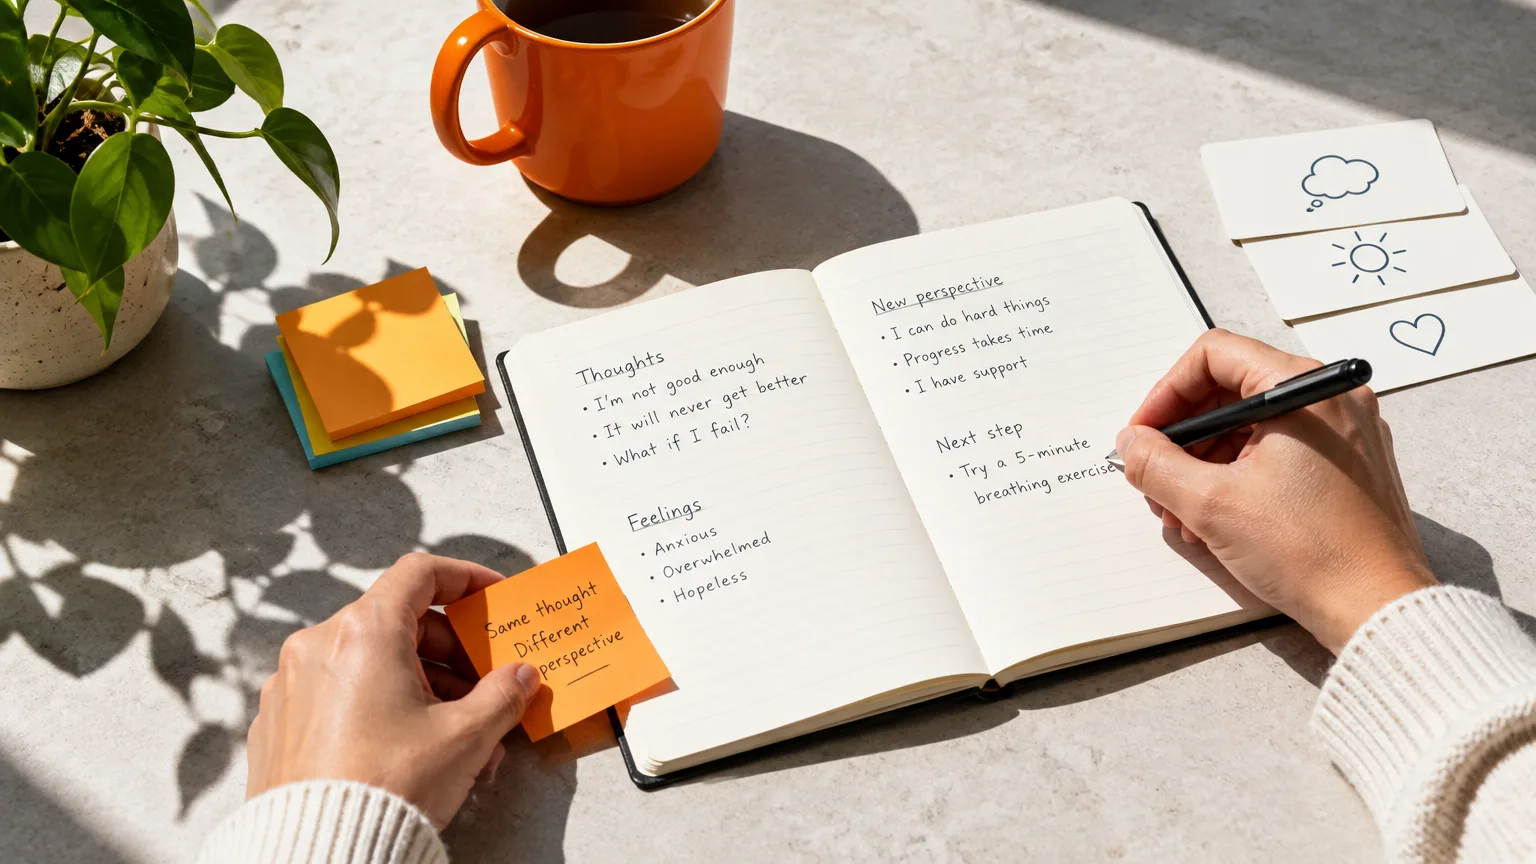 Thoughts
• I'm not good enough
• It will never get better
• What if I fail?
Feelings
• Anxious
• Overwhelmed
• Hopeless
Same thought
Different
perspective
New perspective
• I can do hard things
• Progress takes time
• I have support
Next step
• Try a 5-minute
breathing exercise